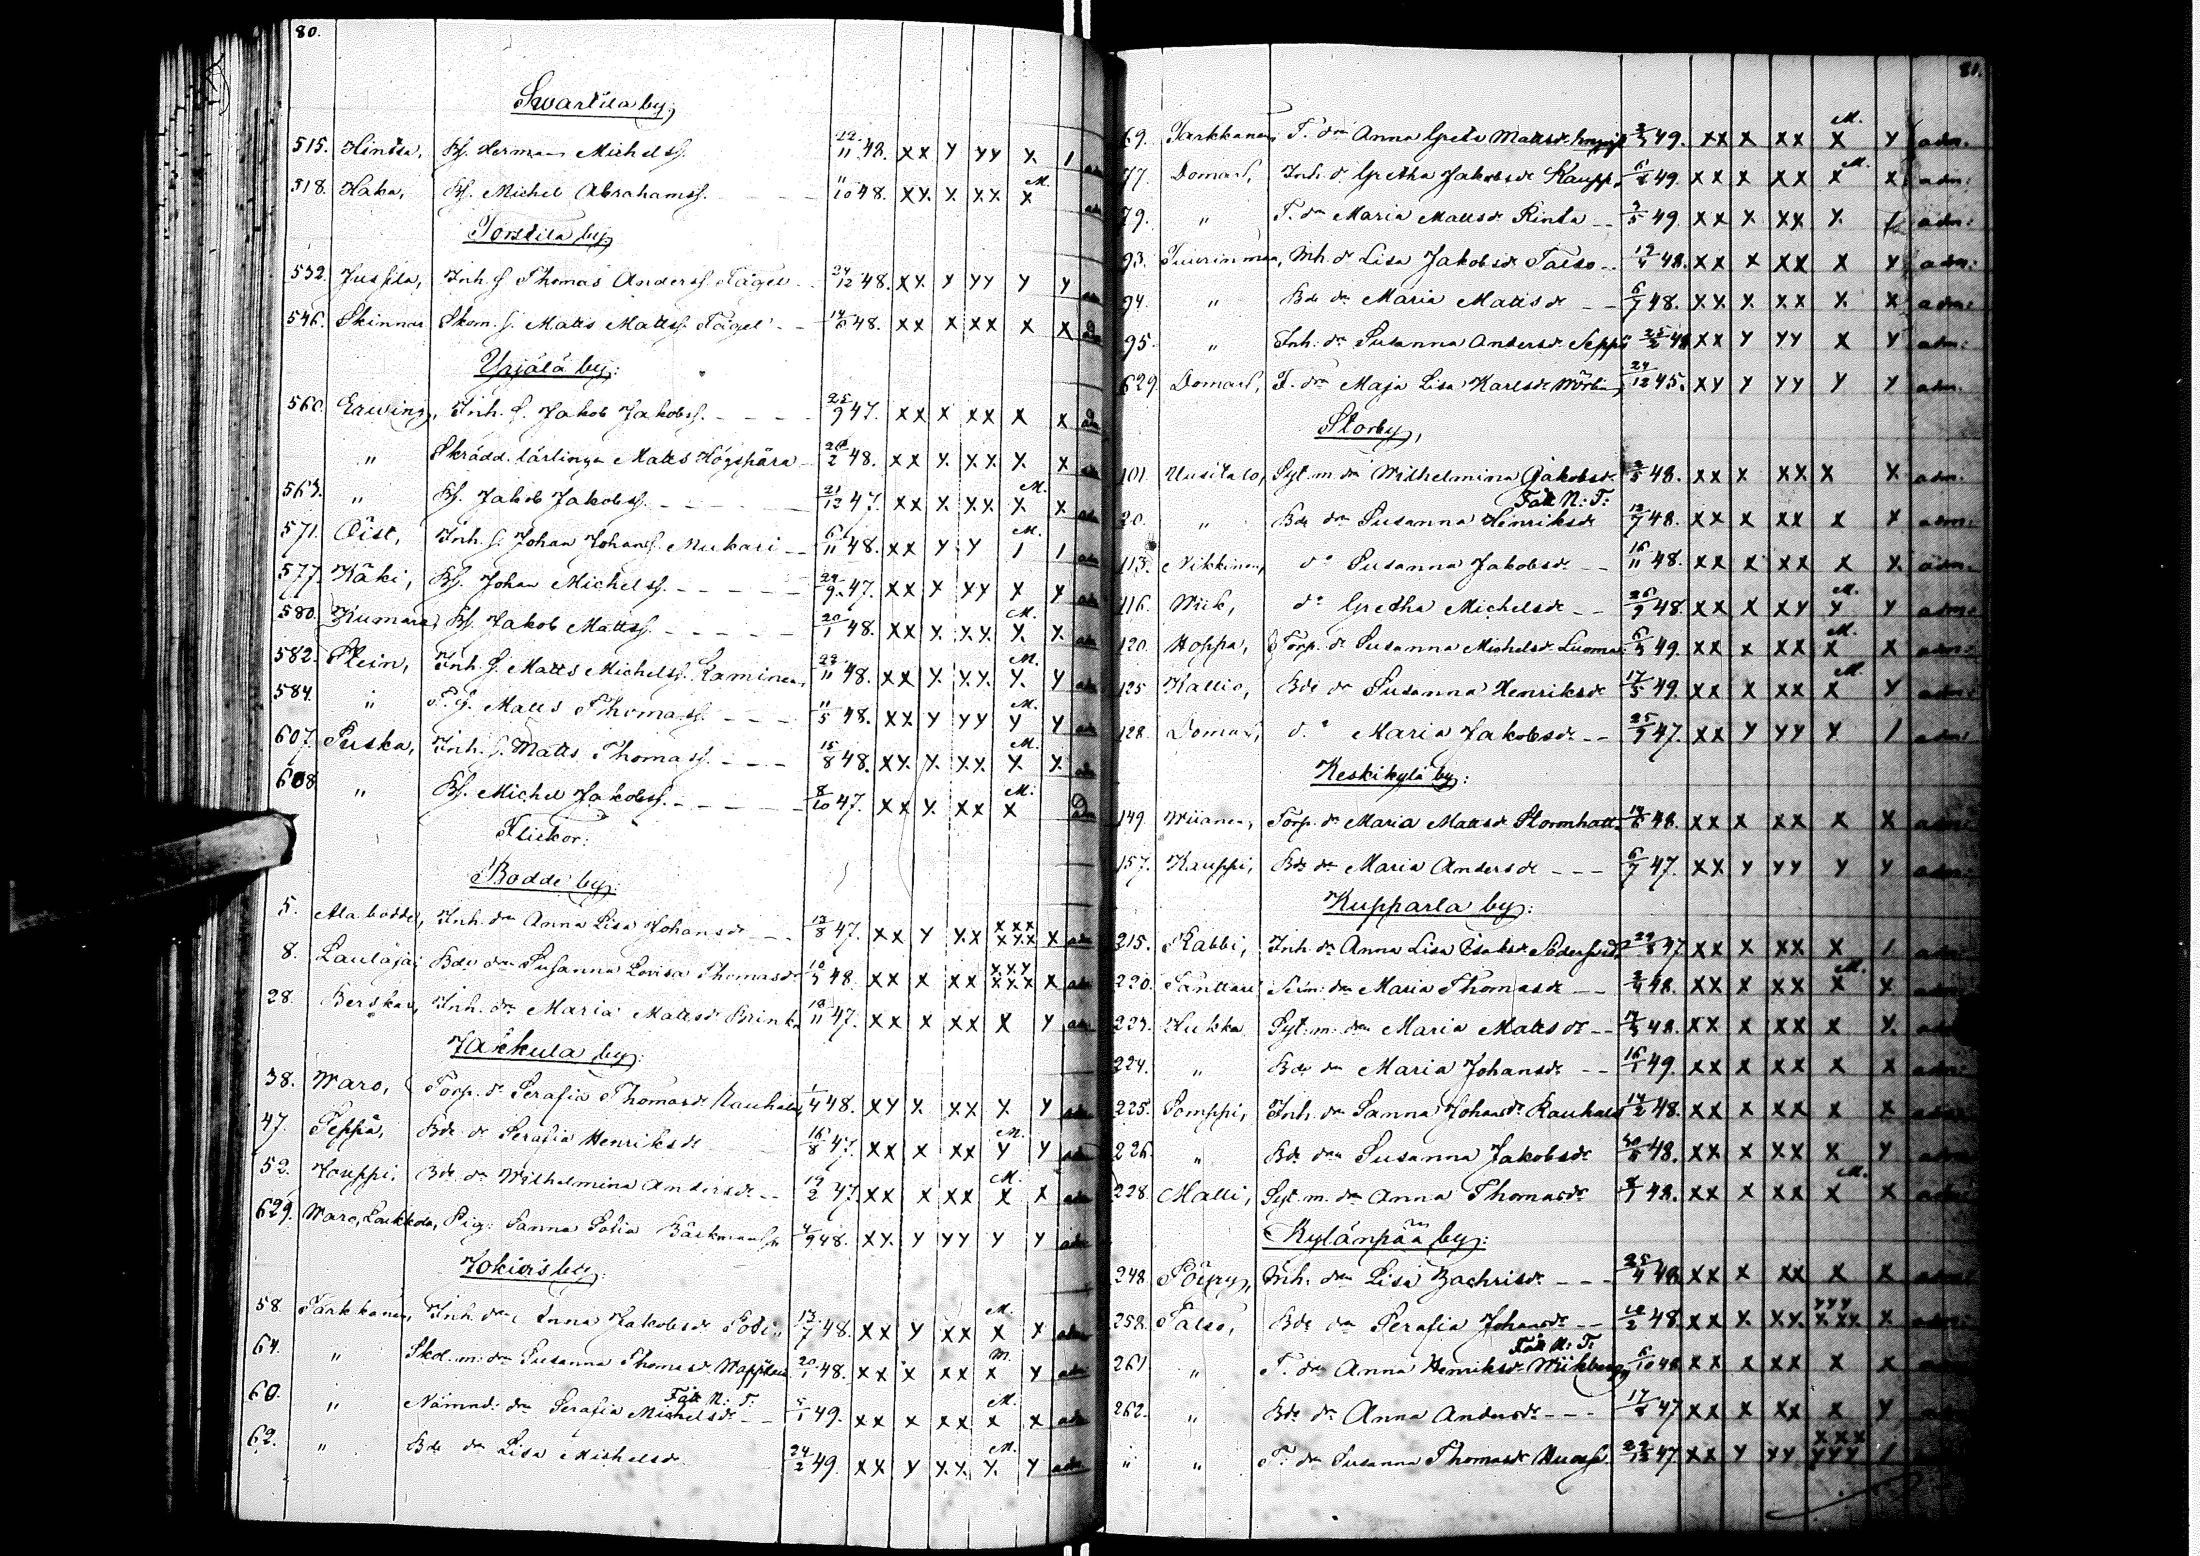 80.
Swartila by:
515. Hintsa, Bs. Herman Michelss. 12/11 48. xx y yy x 1
518. Haka, Bs. Michel Abrahamss. - - - 11/10 48. xx x xx x M.
Torstila by:
532. Jussila, Inh. s. Thomas Anderss. Fågel - 24/12 48. xx y yy y y
546. Skinnar Skom. s. Matts Mattss. Fågel - - 14/6 48. xx x xx x x
Yrjälä by:
560. Erwing, Inh. s. Jakob Jakobss. - - - 25/9 47. xx x xx x x
" Skrädd. lärlingen Matts Högspära 26/2 48. xx x xx x x
563. " Bs. Jakob Jakobss. - - - - 21/12 47. xx x xx x M. x
571. Öist, Inh. s. Johan Johanss. Mukari - - 6/11 48. xx y y 1 M. 1
577. Käki, Bs. Johan Michelss. - - - - 29/9 47. xx x yy x y
580. Kumara, Bs. Jakob Mattss. - - - - 20/1 48. xx x xx x M. x
582. Plein, Inh. s. Matts Michelss. Kaminen, 22/11 48. xx x xx x M. y
584. " T. s. Matts Thomass. - - - 11/5 48. xx y yy y M. y
607. Puska, Inh. s. Matts Thomass. - - - 15/8 48. xx x xx x M. x
608. " Bs. Michel Jakobss. - - - - 8/10 47. xx x xx x M.
Flickor:
Bodde by:
5. Ala bodde, Inh. dr. Anna Lisa Johansdr. - - 12/8 47. xx y xx xxx xxx x adm.
8. Laulaja, Bde dr. Susanna Lovisa Thomasdr. 10/5 48. xx x xx xxx xxx x adm.
28. Berskar, Inh. dr. Maria Mattsdr. Brink, 18/11 47. xx x xx x y adm.
Jäkkula by:
38. Waro, Torp. dr. Serafia Thomasdr. Rauhala, 1/4 48. xy x xx x y adm.
47. Seppä, Bde dr. Serafia Henriksdr. 16/8 47. xx x xx y M. y adm.
52. Kauppi, Bde dr. Wilhelmina Andersdr. - - 19/2 47. xx x xx x M. x adm.
629. Waro, Laukkola, Pig: Sanna Sofia Bäckman 4/9 48. xx y yy y y adm.
Jokiris by:
58. Tarkkanen, Inh. dr. Anna Jakobsdr. Sodi,, 13/7 48. xx y xx x M. x adm.
64. " Skol. m. dr. Susanna Thomasdr. 20/1 48. xx x xx x M. y adm.
Fått N: T:
60. " Nämnd: dr. Serafia Michelsdr. - - 5/1 49. xx x xx x M. x adm.
62. " Bde dr. Lisa Michelsdr. 24/2 49. xx y xx x M. y adm.
81.
69. Tarkkanen, T. dr. Anna Greta Mattsdr. 49. xx x xx x M. y adm.
77. Domars, Inh. dr. Gretha Jakobsdr. Kaupp, 49. xx x xx x M. x adm:
79. " T. dr. Maria Mattsdr. Rinta - - 49. xx x xx x adm:
93. Inh. dr. Lisa Jakobsdr. Talso - - 48. xx x xx x y adm:
94. " Bde dr. Maria Mattsdr. - - 6/7 48. xx x xx x x adm:
95. " Inh. dr. Susanna Andersdr. Seppä 25/2 48 xx y yy x y adm:
629. Domars, T. dr. Maja Lisa Karlsdr. 24/12 45. xy y yy y y adm.
Storby,
101. Uusitalo, Syt. m. dr. Wilhelmina Jakobsdr. 48. xx x xx x x adm.
Fått N: T:
20. " Bde dr. Susanna Henriksdr. 12/7 48. xx x xx x x adm:
113. Nikkinen, do Susanna Jakobsdr. - - 16/11 48. xx x xx x x adm.
116. Wiik, do Gretha Michelsdr. - - 26/9 48. xx x xy y M. y adm.
120. Hoppa, Torp. dr. Susanna Michelsdr. Luoma 49. xx x xx x M. x adm.
125 Kallio, Bde dr. Susanna Henriksdr. 17/5 49. xx x xx x M. y adm.
128. Domars, do Maria Jakobsdr. - - 25/9 47. xx y yy y 1 adm.
Keskikylä by:
149. Wiianen, Torp. dr. Maria Mattsdr. Stormhatt 48. xx x xx x x adm.
157. Kauppi, Bde dr. Maria Andersdr. - - - 6/7 47. xx y yy y y adm.
Kupparla by:
215. Rabbi, Inh. dr. Anna Lisa Isaksdr. 29/8 47. xx x xx x 1 adm.
220. Panttari Seim. dr. Maria Thomasdr. - - 48. xx x xx x M. x adm.
223. Hukka Syt. m: dr. Maria Mattsdr. - - 48. xx x xx x x adm.
224. " Bde dr. Maria Johansdr. - - 16/1 49. xx x xx x x adm.
225. Pomppi, Inh. dr. Sanna Johansdr. Rauhala 14/2 48. xx x xx x x adm.
226. " Bde dr. Susanna Jakobsdr. 48. xx x xx x y adm.
228. Malli, Syt. m. dr. Anna Thomasdr. 48. xx x xx x M. x adm.
Kylänpää by:
248. Pölpy, Inh. dr. Lisa Zachrisdr. - - - 25/4 48 xx x xx x x adm.
258. Talso, Bde dr. Serafia Johansdr. - - 18/2 48. xx x xx yyy xxx x adm.
Fått N: T:
261. " T. dr. Anna Henriksdr. Wiikberg 6/10 48 xx x xx x x adm.
262. " Bde dr. Anna Andersdr. - - - 47 xx x xx x y adm.
" " T. dr. Susanna Thomasdr. 22/12 47 xx y yy xxx yyy 1